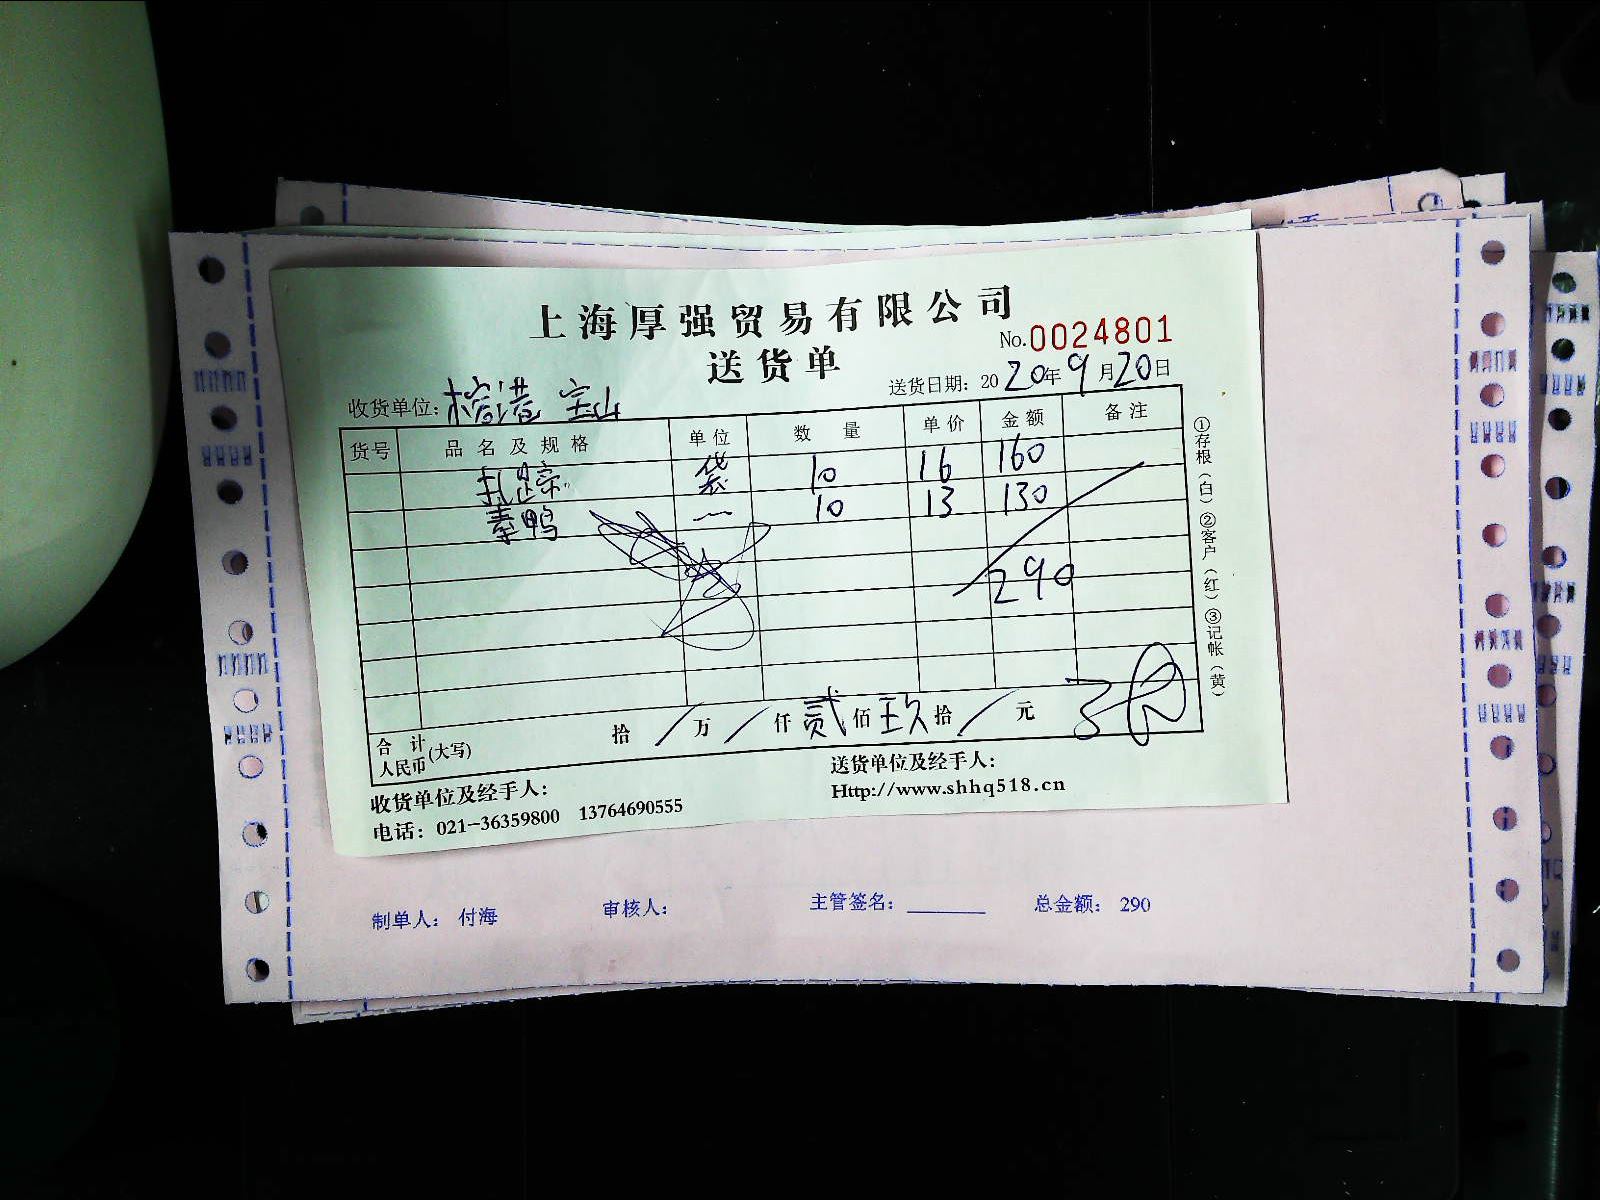 上海厚强贸易有限公司
No.0024801
送货单
送货日期：2020年9月20日
收货单位： 宝山
货号 品名及规格 单位 数量 单价 金额 备注
扎蹄 袋 10 16 160
素鸭 10 13 130
290
合计人民币(大写) 拾/万/仟贰佰玖拾/元
收货单位及经手人：
送货单位及经手人：
电话：021-36359800 13764690555
Http://www.shhq518.cn
①存根（白）②客户（红）③记帐（黄）
制单人： 付海 审核人： 主管签名： 总金额： 290